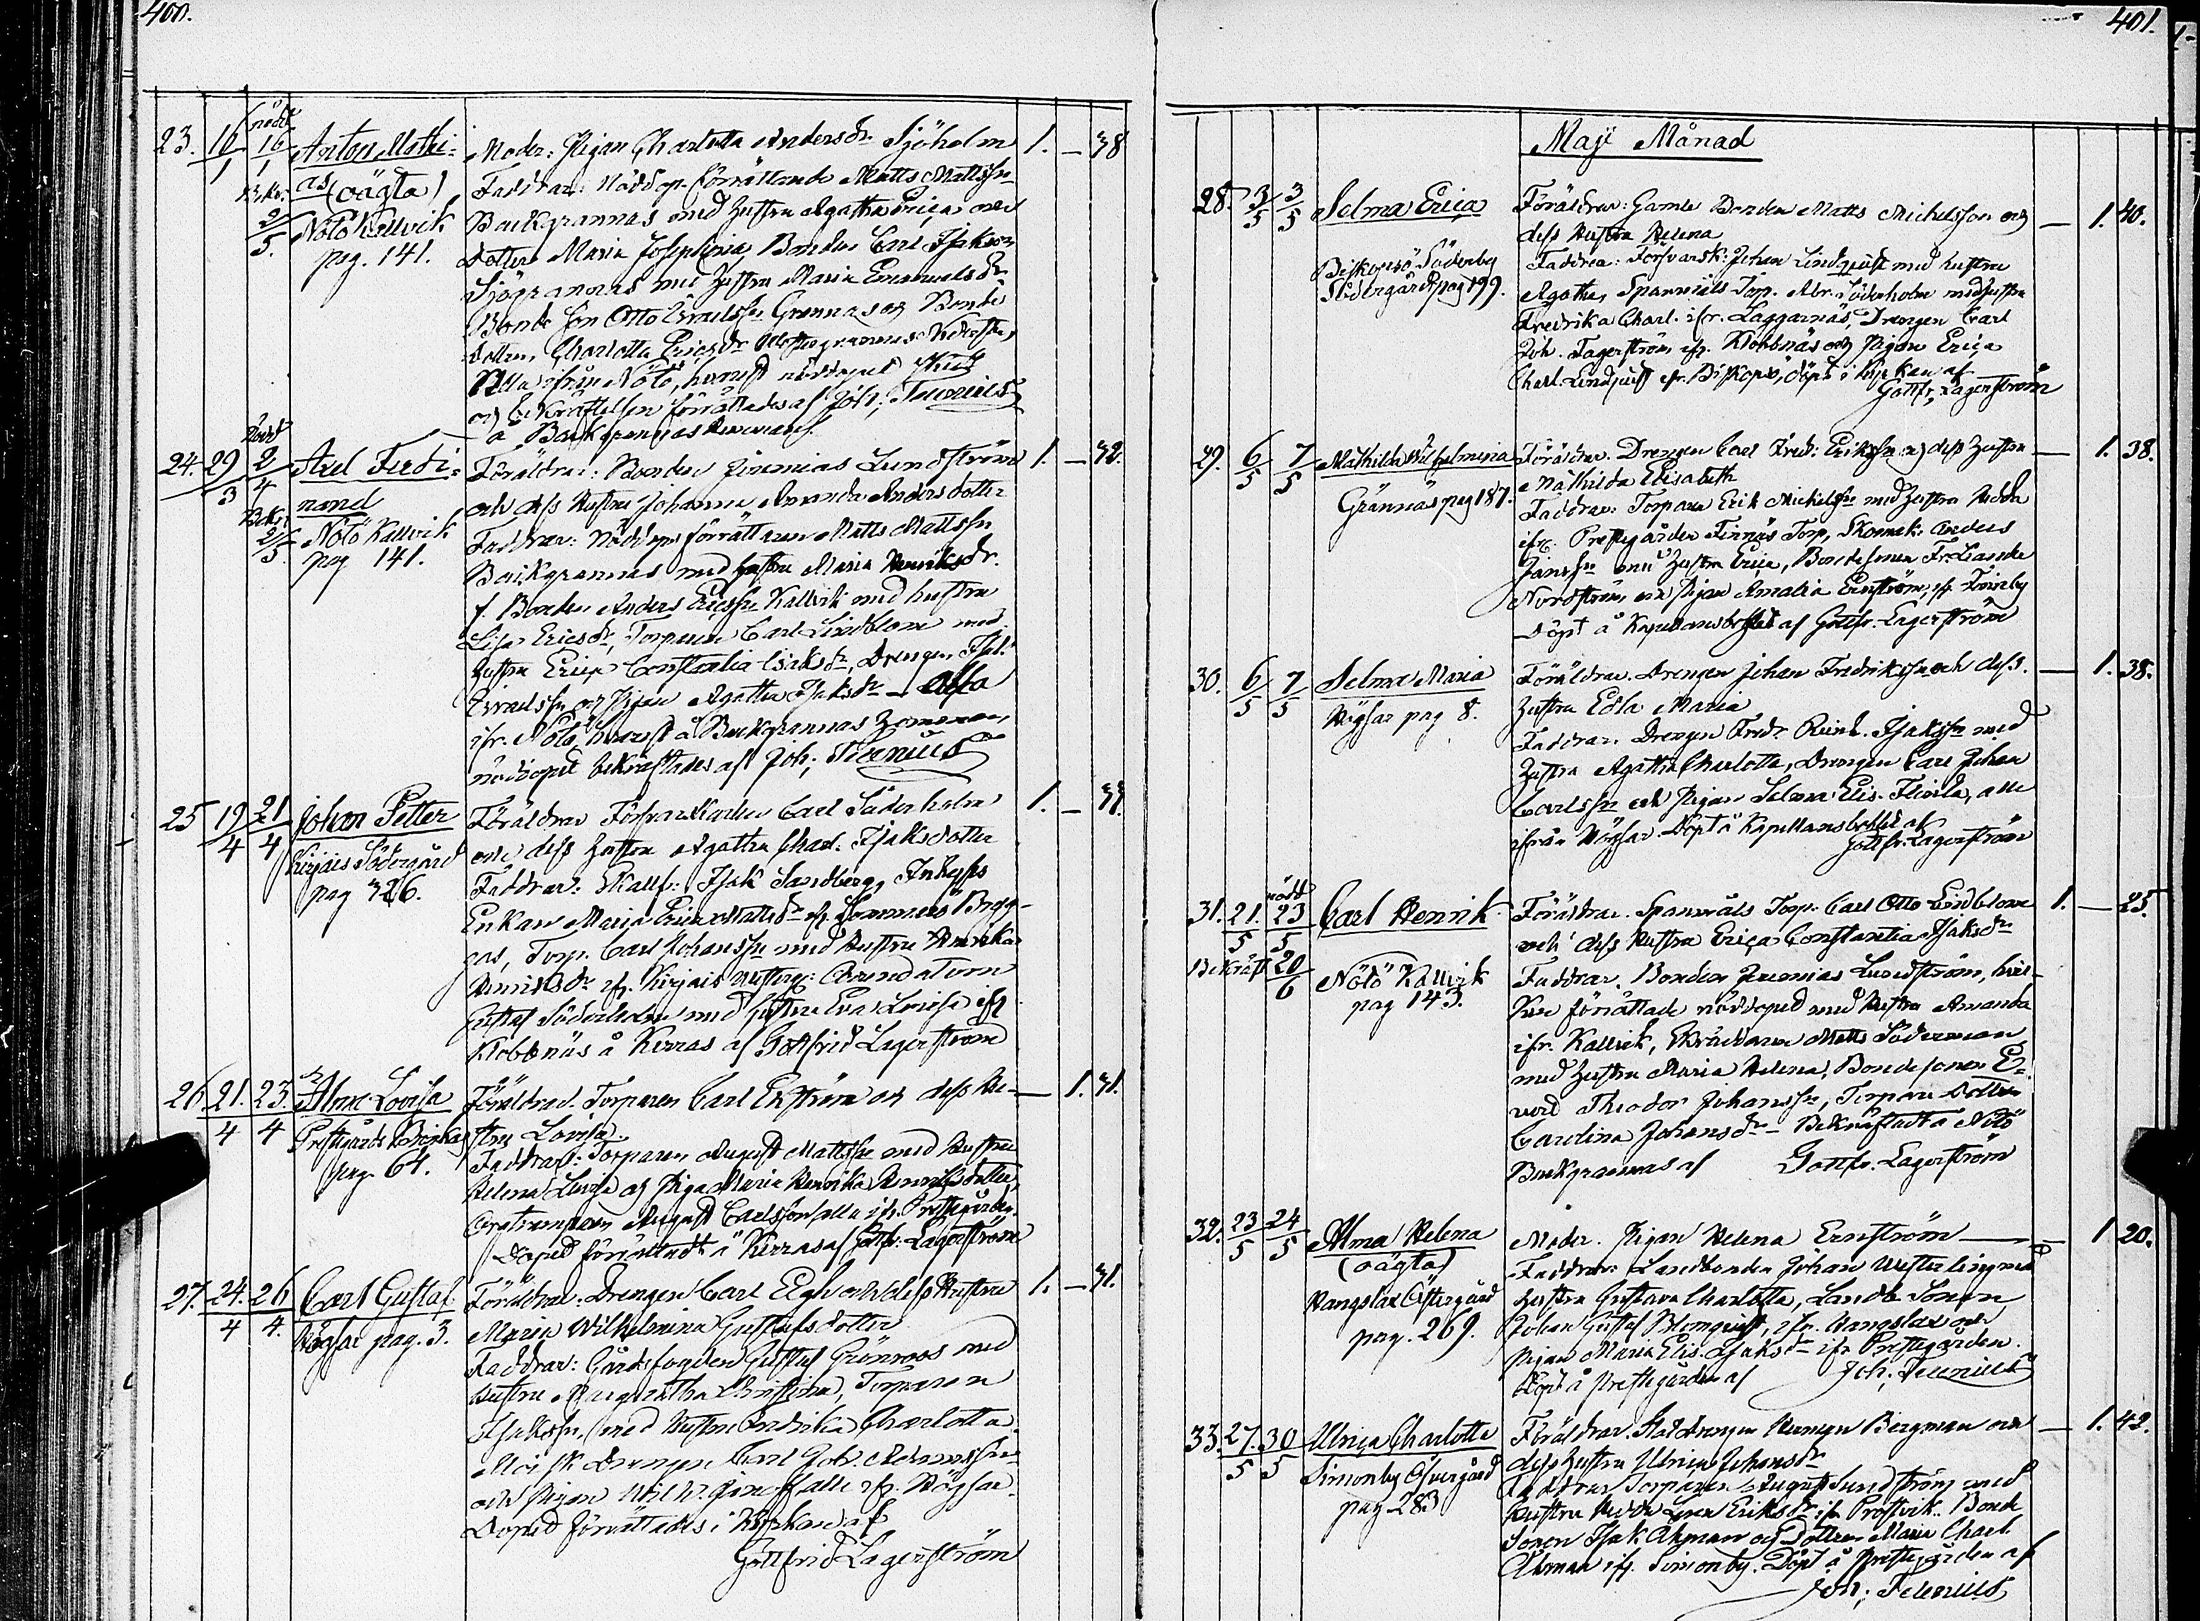 400.
23. 16/1 nöddt 16/1 Anton Mathi-
as (oägta)
Bekr. 2/5. Nötö Kallvik
pag. 141.
Moder: Pigan Charlotta Andersdr Sjöholm 1. — 38
Faddrar: Nöddop. förrättande Matts Mattssn
Backgrannas med hustru Agatha Erica och
dotter Maria Josephina, Bonden Carl Isaksson
Sjögrannas med hustru Maria Emanuelsdr
Bonde Son Otto Israelssn Grannas och Bonde
dottren Charlotta Ericsdr
alla ifrån Nötö, hvarest nöddopet
och bekräftelsen förrättades af Joh: Telenius
å Backgrannas hemman.
24. 29/3 Nöddt 2/4 Axel Ferdi-
nand
Bekr. 2/5 Nötö Kallvik
pag 141.
Föräldrar: Bonden Jeremias Lundström 1. — 32.
och dess Hustru Johanna Amanda Andersdotter
Faddrar: Nöddops förrättaren Matts Mattssn
Backgrannas med hustru Maria Henriksdr.
f. Bonden Anders Ericssn Kallvik med hustru
Lisa Ericsdr, Torparen Carl Lindblom med
hustru Erica Constantia Isaksdr, Drengen Isak
Israelssn och Pigan Agatha Isaksdr — Alla
ifr. Nötö, hvarest å Backgrannas hemman,
nöddopet bekräftades af Joh: Telenius
25 19/4 21/4 Johan Petter
Kirjais Södergård
pag 326.
Föräldrar Försvarskarlen Carl Söderholm 1. —
och dess hustru Agatha Charl. Isaksdotter
Faddrar: Skallf: Isak Sandberg, Inhyses
Enkan Maria Erica Mattsdr ifr.
Torp. Carl Johanssn med Hustru Henrika
Henriksdr ifr. Kirjais
Gustaf Söderholm med hustru Eva Lovisa ifr
Klobbnäs å Kirras af Gottfrid Lagerström
26. 21./4 23./4 Alma Lovisa
Prestgårds
pag. 64.
Föräldrar. Torparen Carl Ekström och dess Hu- — 1. 31.
stru Lovisa.
Faddrar: Torparen August Mattssn med hustru
Helena Lovisa och Piga Maria Henrika Henriksdotter,
August Carlsson alla ifr. Prestgården.
Dopet förrättadt å Kirras af Gottfr. Lagerström
27. 24./4 26/4. Carl Gustaf
Högsar pag. 3.
Föräldrar: Drengen Carl Elgh och dess Hustru 1. — 31.
Maria Wilhelmina Gustafsdotter
Faddrar: Gårdsfogden Gustaf Grönroos med
hustru Margaretha Christina, Torparen
Isakssn med hustru Fredrika Charlotta
Drengen Carl Joh. Adamssn
och Pigan alla ifr. Högsar.
Dopet förrättades i Kyrkan af
Gottfrid Lagerström
401.
Maji Månad
28. 3/5 3/5 Selma Erica
Biskopsö Söderby
Södergård pag 199.
Föräldrar: Gamle Bonden Matts Michelsson och — 1. 40.
dess Hustru Helena
Faddrar: Försvarsk: Johan Lindqvist med hustru
Agatha, Spannmåls Torp. Abr. Söderholm med hustru
Fredrika Charl. ifr. Laggarnäs, Drengen Carl
Joh. Fagerström ifr. Klobbnäs och Pigan Erica
Charl. Lindqvist ifr. Biskopsö, döpt i kyrkan af
Gottfr. Lagerström
29. 6/5 7/5 Mathilda Wilhelmina
Grännäs pag 187.
Föräldrar. Drengen Carl Fred: Erikssn och dess hustru — 1. 38.
Mathilda Elisabeth
Faddrar: Torparen Erik Michelssn med hustru Hedda
ifr. Prestgården Finnäs Torp, Skomak. Anders
Janssn med hustru Erica, Bondesonen Fr.
Nordström och Pigan Amalia Ernström, ifr. Finnby
Döpt å Kapellansbohlet af Gottfr. Lagerström
30. 6/5 7/5 Selma Maria
Högsar pag 8.
Föräldrar. Drengen Johan Fredrikssn och dess — 1. 38.
hustru Edla Maria
Faddrar. Drengen Fredr. Reinh. Isakssn med
hustru Agatha Charlotta, Drengen Carl Johan
Carlssn och Pigan Selma Elis. alla
ifrån Högsar. Döpt å Kapellansbohlet af
Gottfr. Lagerström
31. 21./5 nödd 23/5 Carl Henrik
Bekräft 20/6 Nötö Kallvik
pag 143.
Föräldrar. Spannmåls Torp. Carl Otto Lindblom 1. — 25.
och dess hustru Erica Constantia Isaksdr
Faddrar. Bonden Jeremias Lundström, hvil-
ken förrättade nöddopet med hustru Amanda
ifr. Kallvik, Matts Söderman
med hustru Maria Helena, Bondesonen E-
vard Theodor Johanssn, Torpare dotter
Carolina Johansdr — Bekräftadt å Nötö
Backgrannas af Gottfr. Lagerström
32. 23/5 24/5 Alma Helena
(oägta)
Vangslax Östergård
pag. 269.
Moder. Pigan Helena Ernström — 1 20.
Faddrar: Landbonden Johan Westerling med
hustru Gustava Charlotta, Landb. Sonen
Johan Gustaf Blomqvist, ifr. Vangslax och
Pigan Maria Elis. Isaksdr ifr Prestgården.
Döpt å Prestgården af Joh: Telenius
33. 27./5 30/5 Ulrica Charlotta
Simonby Öfvergård
pag 283
Föräldrar. Herman Bergman och — 1. 42.
dess hustru Ulrica Johansdr
Faddrar Torparen August Sundström med
hustru Hedda Lena Eriksdr ifr Prostvik. Bonde
Sonen Isak Åhman och Dottren Maria Charl.
Åhman ifr. Simonby. Döpt å Prestgården af
Joh: Telenius